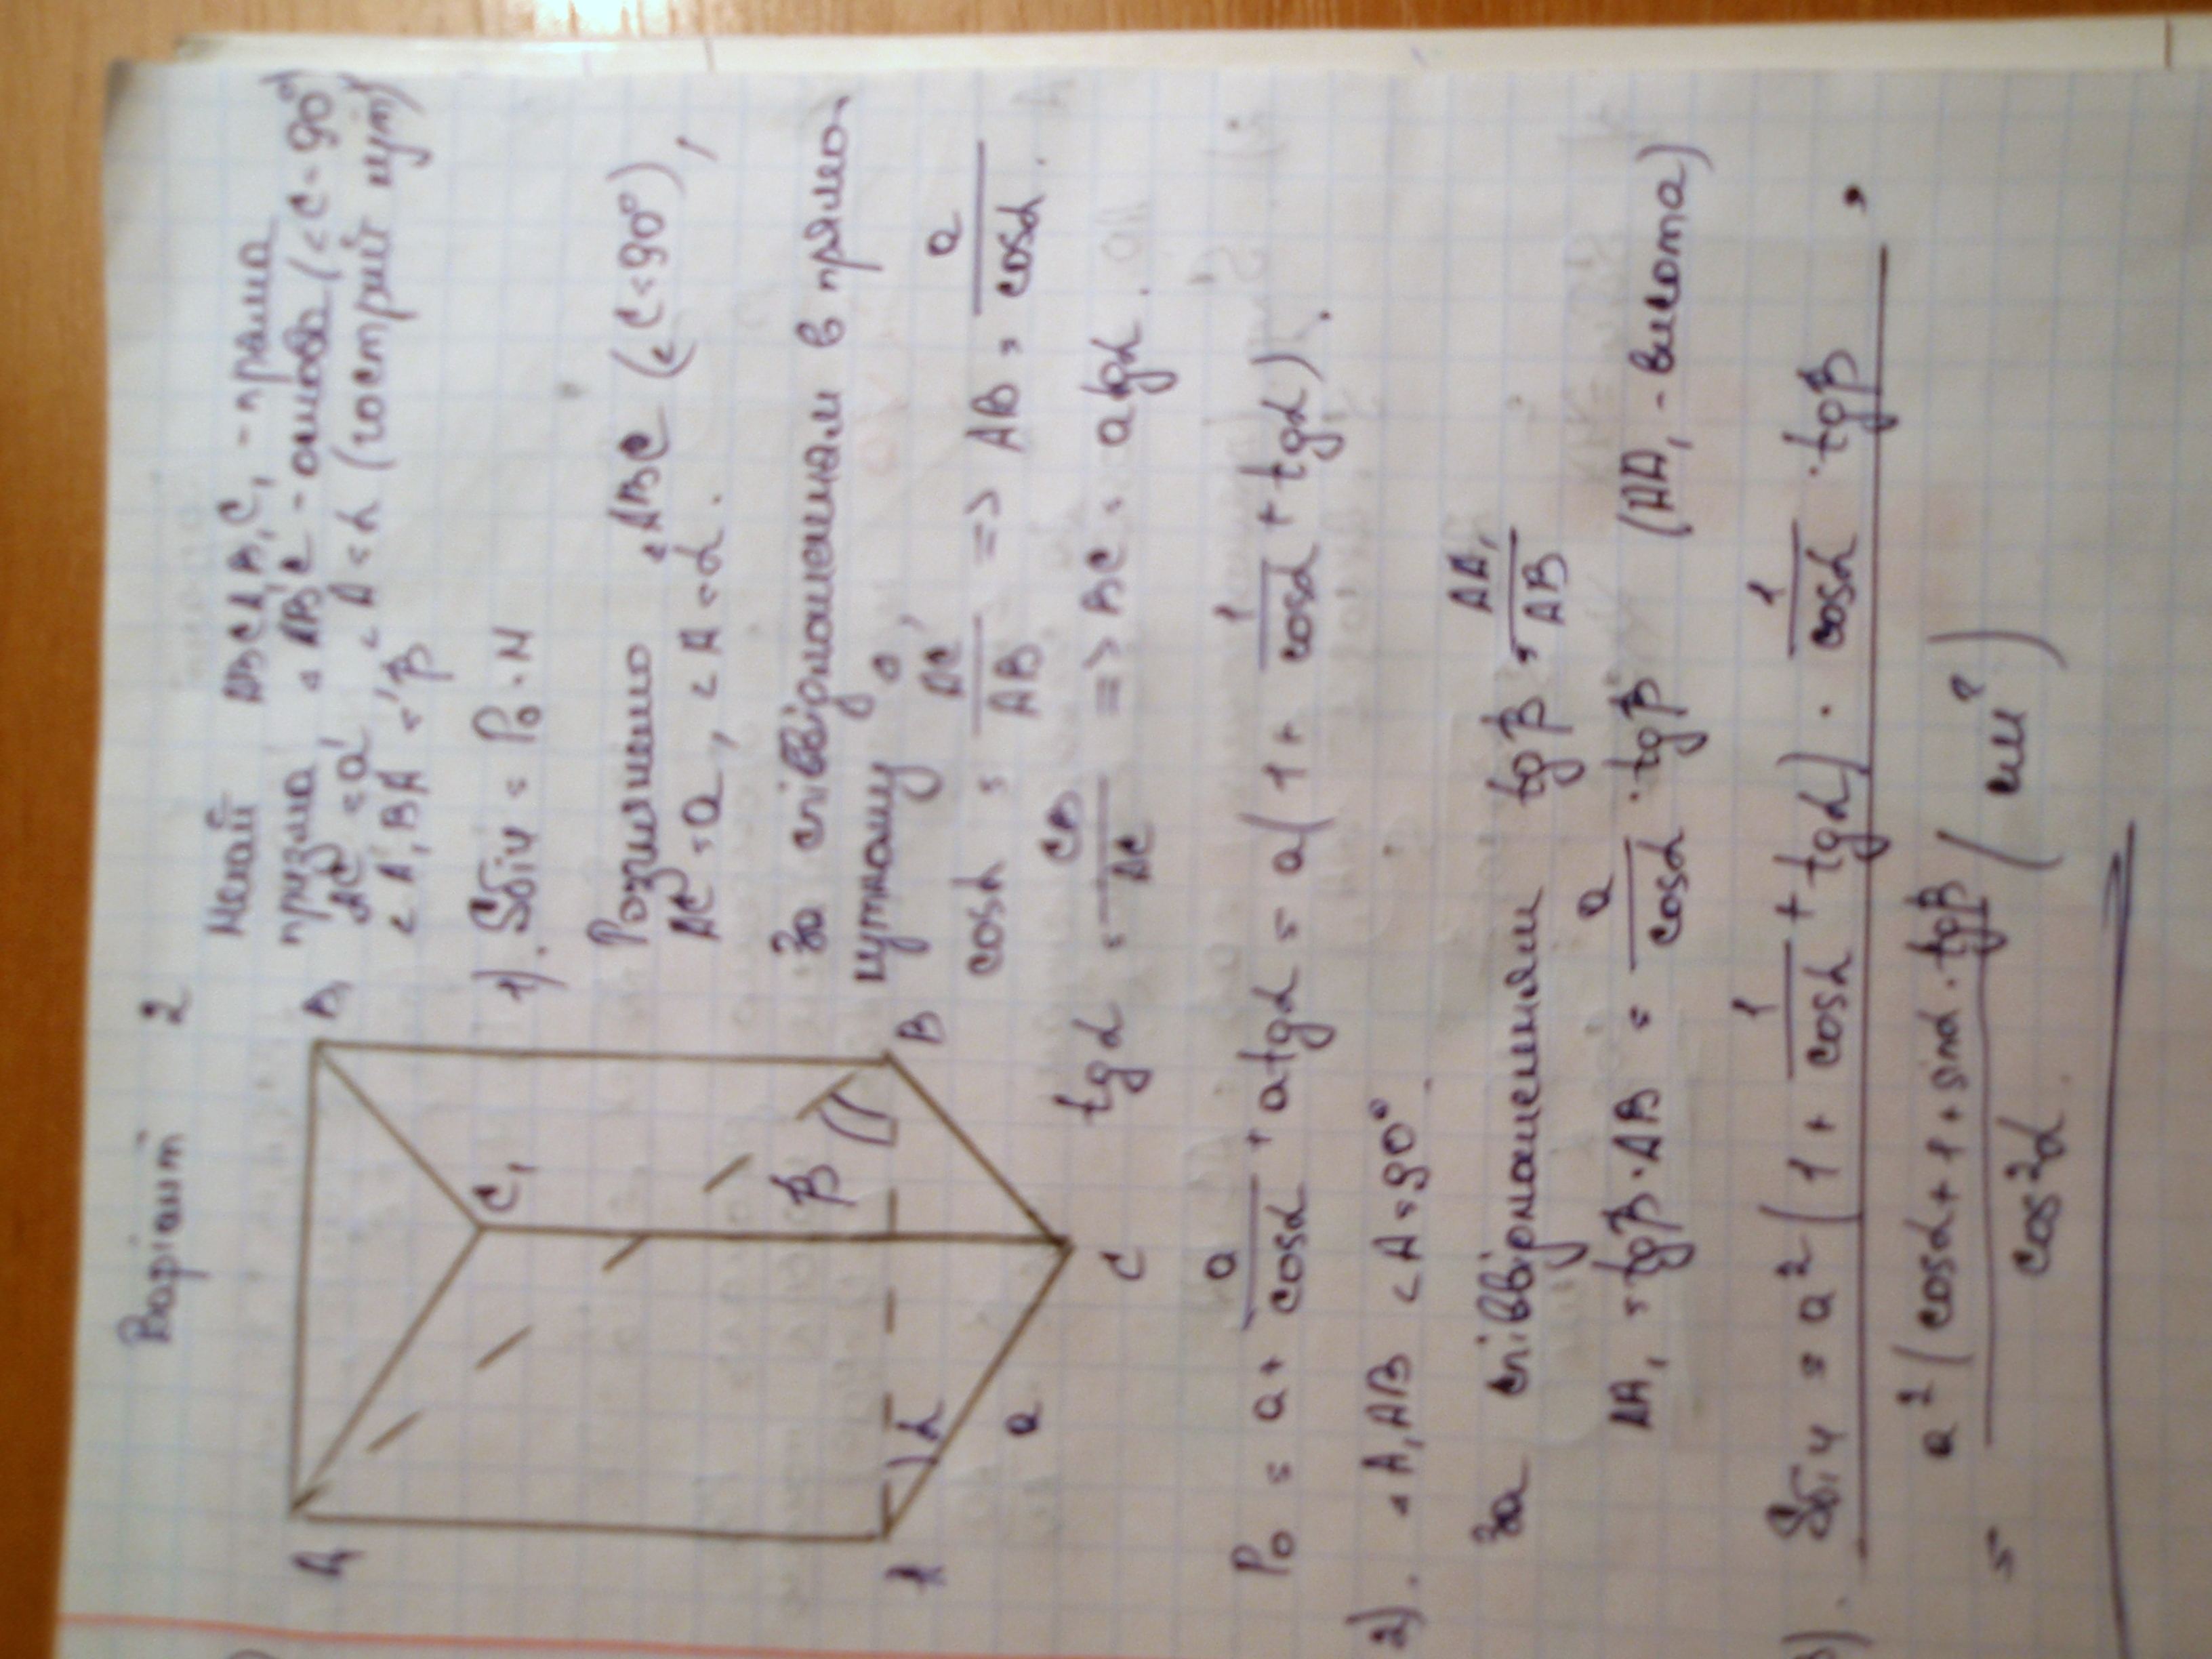 Варіант 2
Нехай ABCA₁B₁C₁ - пряма
призма △ABC - основа (∠C = 90°)
AC = a, ∠A = α (гострий кут)
∠A₁BA = β
1). Sбіч = Pо · H
Розглянемо △ABC (∠C = 90°),
AC = a, ∠A = α.
За співвідношенням в прямо-
кутному △,
cosα = AC/AB => AB = a/cosα.
tgα = CB/AC => BC = a tgα.
A₁
B₁
C₁
β
A
α
B
a
C
Pо = a + a/cosα + a tgα = a(1 + 1/cosα + tgα).
2). △A₁AB ∠A = 90°.
За співвідношенням tgβ = AA₁/AB
AA₁ = tgβ · AB = a/cosα · tgβ (AA₁ - висота)
3). Sбіч = a²(1 + 1/cosα + tgα) · 1/cosα · tgβ =
= a²(cosα + 1 + sinα · tgβ / cos²α (см²)